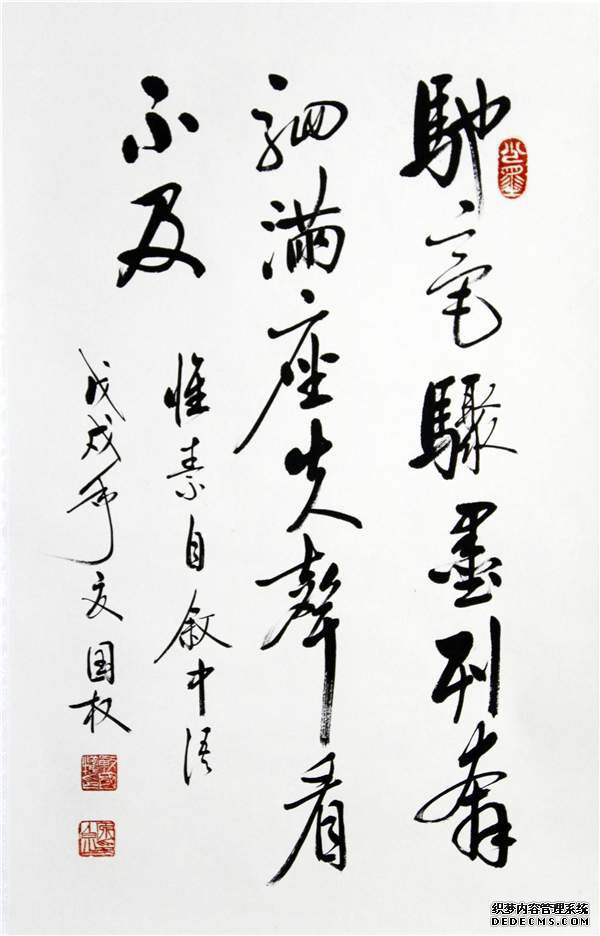 馳毫驟墨列奔
駟滿座失聲看
不及
懷素自叙中語
戊戌年国权
织梦内容管理系统
DEDECMS.COM